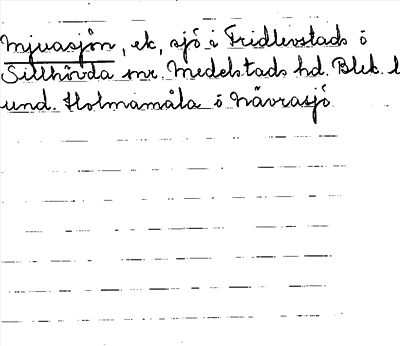 Mjuasjön, ek, sjö i Fridlevstads ö
Sillhövda snr. Medelstads hd. Blek. l
und. Holmamåla ö Nävrasjö